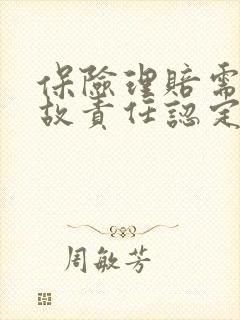 保險理賠需
故責任認定
周敏芳